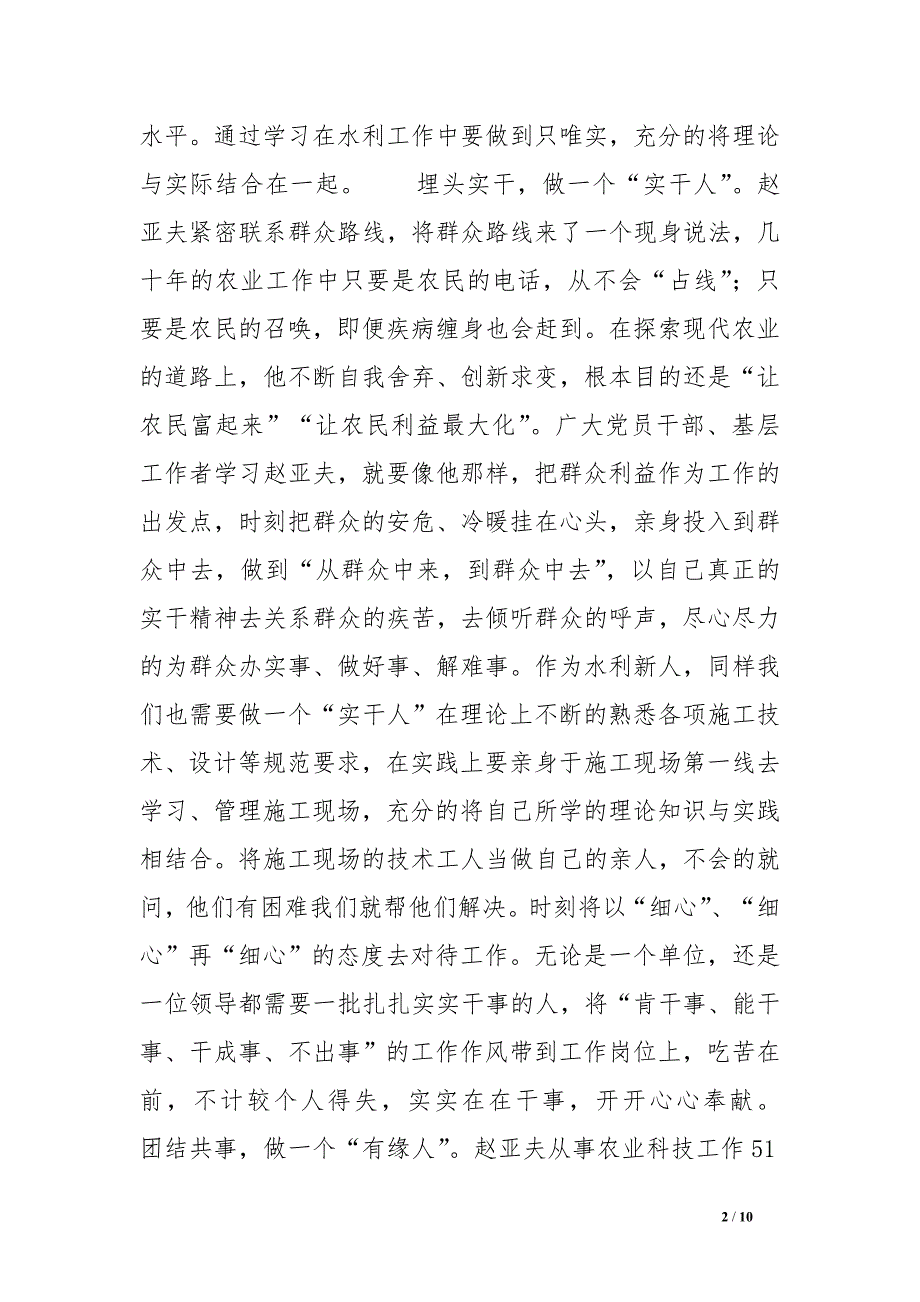 水平。通过学习在水利工作中要做到只唯实，充分的将理论
与实际结合在一起。　　埋头实干，做一个“实干人”。赵
亚夫紧密联系群众路线，将群众路线来了一个现身说法，几
十年的农业工作中只要是农民的电话，从不会“占线”；只
要是农民的召唤，即便疾病缠身也会赶到。在探索现代农业
的道路上，他不断自我舍弃、创新求变，根本目的还是“让
农民富起来”“让农民利益最大化”。广大党员干部、基层
工作者学习赵亚夫，就要像他那样，把群众利益作为工作的
出发点，时刻把群众的安危、冷暖挂在心头，亲身投入到群
众中去，做到“从群众中来，到群众中去”，以自己真正的
实干精神去关系群众的疾苦，去倾听群众的呼声，尽心尽力
的为群众办实事、做好事、解难事。作为水利新人，同样我
们也需要做一个“实干人”在理论上不断的熟悉各项施工技
术、设计等规范要求，在实践上要亲身于施工现场第一线去
学习、管理施工现场，充分的将自己所学的理论知识与实践
相结合。将施工现场的技术工人当做自己的亲人，不会的就
问，他们有困难我们就帮他们解决。时刻将以“细心”、“细
心”再“细心”的态度去对待工作。无论是一个单位，还是
一位领导都需要一批扎扎实实干事的人，将“肯干事、能干
事、干成事、不出事”的工作作风带到工作岗位上，吃苦在
前，不计较个人得失，实实在在干事，开开心心奉献。
团结共事，做一个“有缘人”。赵亚夫从事农业科技工作 51
2 / 10